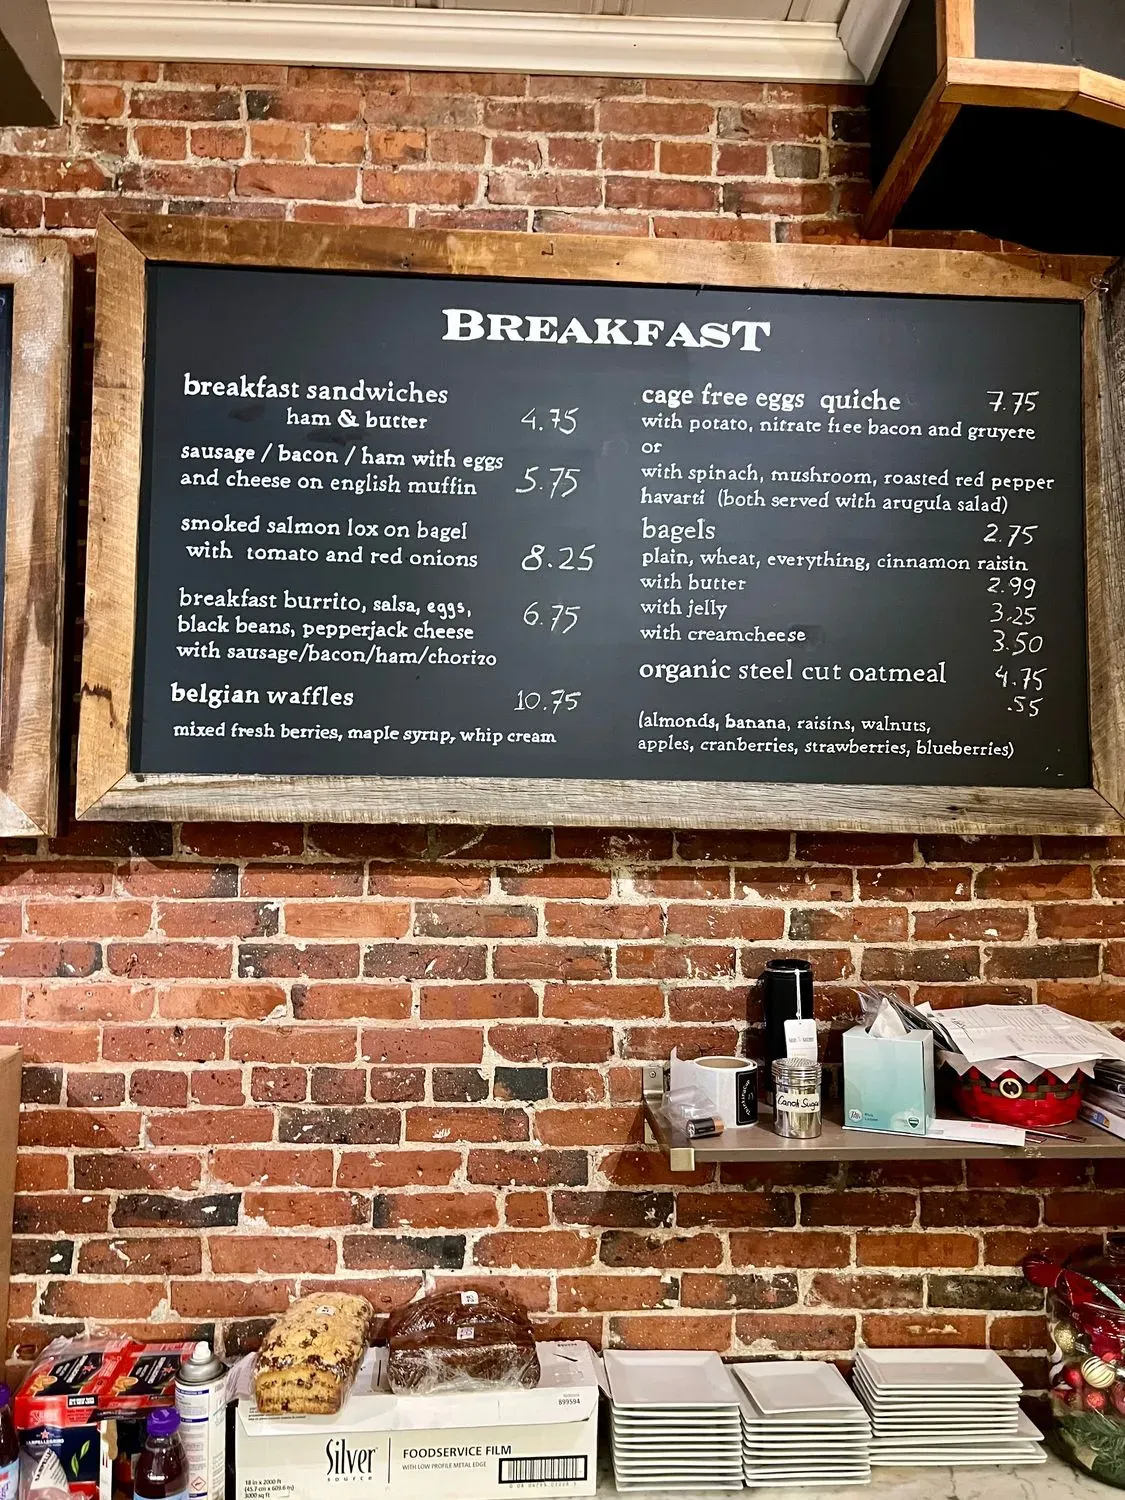 BREAKFAST
breakfast sandwiches
ham & butter 4.75
sausage / bacon / ham with eggs
and cheese on english muffin 5.75
smoked salmon lox on bagel
with tomato and red onions 8.25
breakfast burrito, salsa, eggs, 6.75
black beans, pepperjack cheese
with sausage/bacon/ham/chorizo
belgian waffles 10.75
mixed fresh berries, maple syrup, whip cream
cage free eggs quiche 7.75
with potato, nitrate free bacon and gruyere
or
with spinach, mushroom, roasted red pepper
havarti (both served with arugula salad)
bagels 2.75
plain, wheat, everything, cinnamon raisin
with butter 2.99
with jelly 3.25
with creamcheese 3.50
organic steel cut oatmeal 4.75
.55
(almonds, banana, raisins, walnuts,
apples, cranberries, strawberries, blueberries)
Silver
source
FOODSERVICE FILM
WITH LOW PROFILE METAL EDGE
18 in x 2000 ft
(45.7 cm x 609.6 m)
3000 sq ft
899594